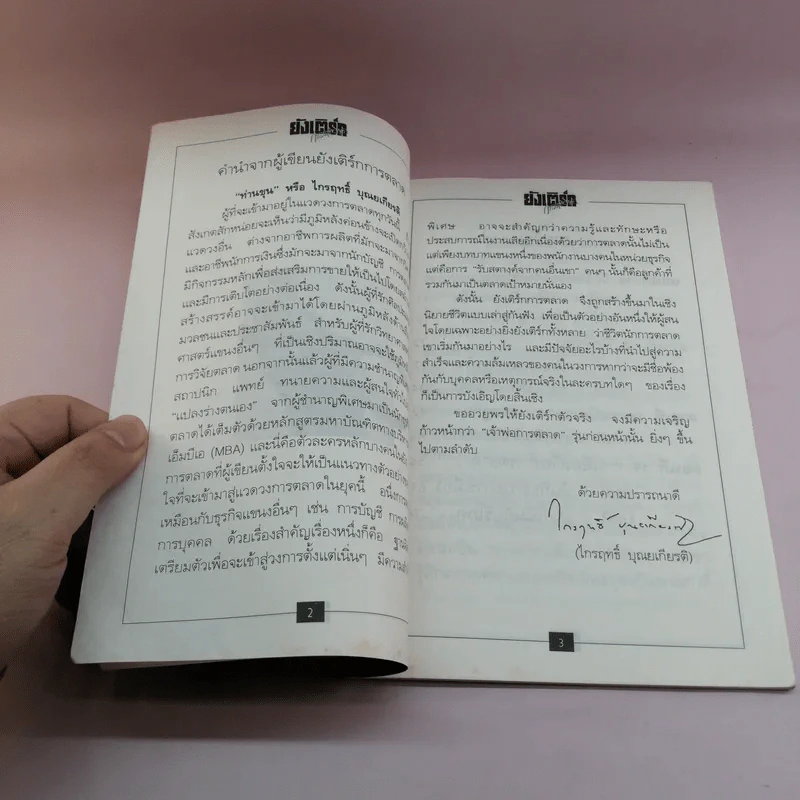 ยังเติร์ก
คำนำจากผู้เขียนยังเติร์กการตลาด
"ท่านขุน" หรือ ไกรฤทธิ์ บุณยเกียรติ
ผู้ที่จะเข้ามาอยู่ในแวดวงการตลาดทุกวันนี้
สังเกตสักหน่อยจะเห็นว่ามีภูมิหลังค่อนข้างจะ
แวดวงอื่น ต่างจากอาชีพการผลิตที่มักจะมาจาก
และอาชีพนักการเงินซึ่งมักจะมาจากนักบัญชี
มีกิจกรรมหลักเพื่อส่งเสริมการขายให้เป็นไปโดย
และมีการเติบโตอย่างต่อเนื่อง ดังนั้นผู้ที่รัก
สร้างสรรค์อาจจะเข้ามาได้โดยผ่านภูมิหลังด้าน
มวลชนและประชาสัมพันธ์ สำหรับผู้ที่รักวิทยาศาสตร์
ศาสตร์แขนงอื่นๆ ที่เป็นเชิงปริมาณอาจจะใช้
การวิจัยตลาด นอกจากนั้นแล้วผู้ที่มีความชำนาญ
สถาปนิก แพทย์ ทนายความและผู้สนใจทั่วไป
"แปลงร่างตนเอง" จากผู้ชำนาญพิเศษมาเป็นนัก
ตลาดได้เต็มตัวด้วยหลักสูตรมหาบัณฑิตทางบริหาร
เอ็มบีเอ (MBA) และนี่คือตัวละครหลักบางคนใน
การตลาดที่ผู้เขียนตั้งใจจะให้เป็นแนวทางตัวอย่าง
ใจที่จะเข้ามาสู่แวดวงการตลาดในยุคนี้ อนึ่งการ
เหมือนกับธุรกิจแขนงอื่นๆ เช่น การบัญชี การ
การบุคคล ด้วยเรื่องสำคัญเรื่องหนึ่งก็คือ
เตรียมตัวเพื่อจะเข้าสู่วงการตั้งแต่เนิ่นๆ มีความ
2
ยังเติร์ก
พิเศษ อาจจะสำคัญกว่าความรู้และทักษะหรือ
ประสบการณ์ในงานเสียอีกเนื่องด้วยว่าการตลาดนั้นไม่เป็น
แต่เพียงบทบาทแขนงหนึ่งของพนักงานบางคนในหน่วยธุรกิจ
แต่คือการ "รับสตางค์จากคนอื่นเขา" คนๆ นั้นก็คือลูกค้าที่
รวมกันมาเป็นตลาดเป้าหมายนั่นเอง
ดังนั้น ยังเติร์กการตลาด จึงถูกสร้างขึ้นมาในเชิง
นิยายชีวิตแบบเล่าสู่กันฟัง เพื่อเป็นตัวอย่างอันหนึ่งให้ผู้สน
ใจโดยเฉพาะอย่างยิ่งยังเติร์กทั้งหลาย ว่าชีวิตนักการตลาด
เขาเริ่มกันมาอย่างไร และมีปัจจัยอะไรบ้างที่นำไปสู่ความ
สำเร็จและความล้มเหลวของคนในวงการหากว่าจะมีชื่อพ้อง
กันกับบุคคลหรือเหตุการณ์จริงในละครบทใดๆ ของเรื่อง
ก็เป็นการบังเอิญโดยสิ้นเชิง
ขออวยพรให้ยังเติร์กตัวจริง จงมีความเจริญ
ก้าวหน้ากว่า "เจ้าพ่อการตลาด" รุ่นก่อนหน้านั้น ยิ่งๆ ขึ้น
ไปตามลำดับ
ด้วยความปรารถนาดี
ไกรฤทธิ์ บุณยเกียรติ
(ไกรฤทธิ์ บุณยเกียรติ)
3